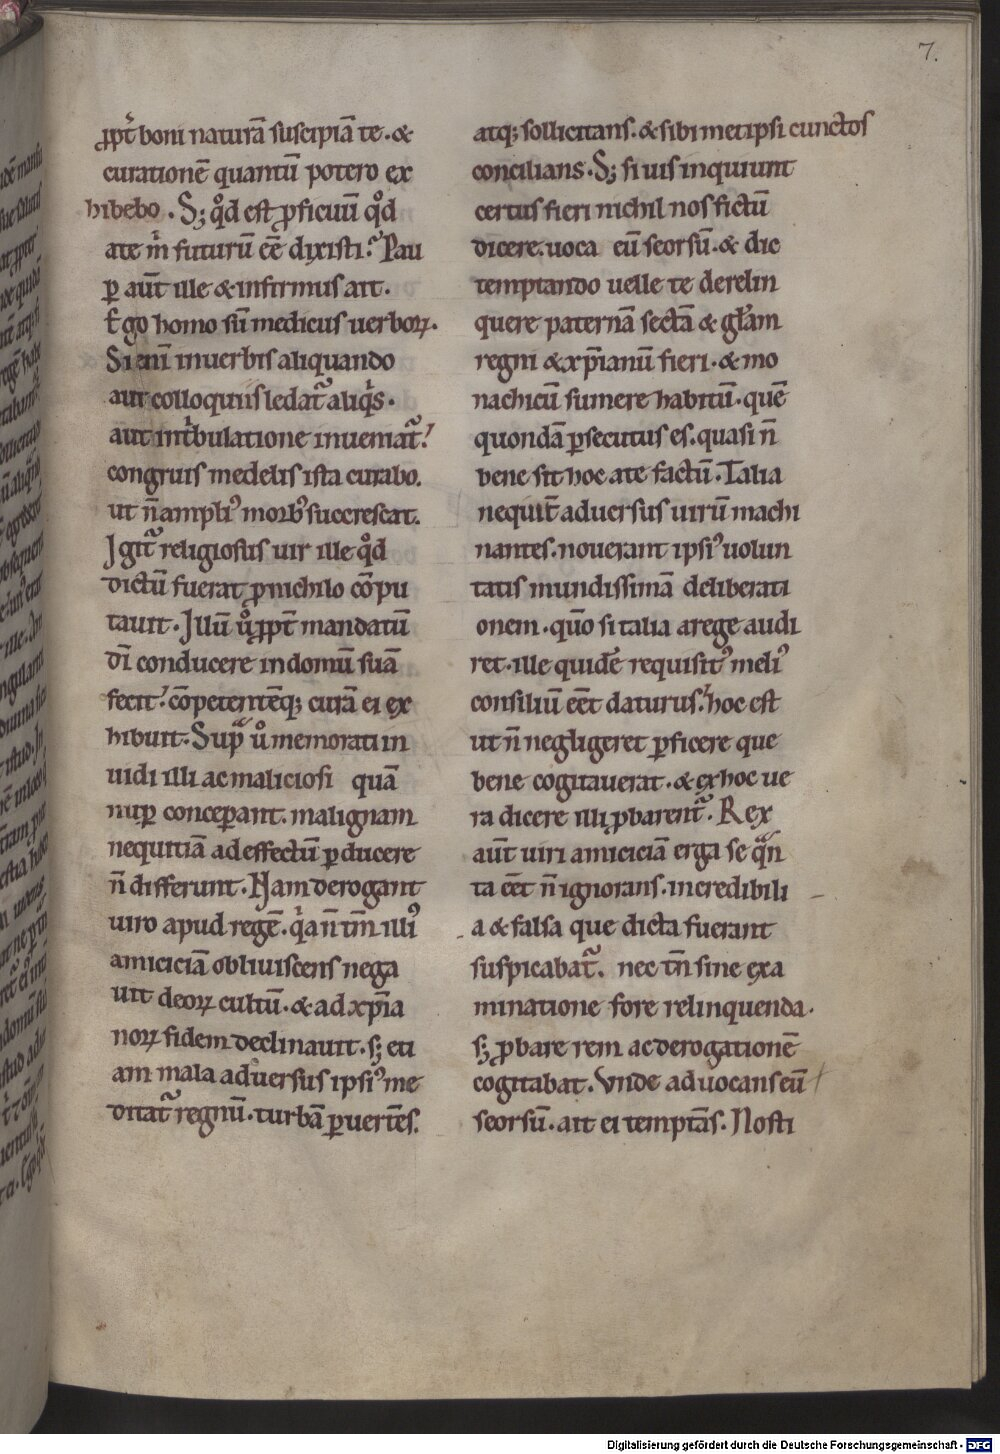 7.
ꝓpt̄ boni naturā suscipiā te. &
curationē quantū potero ex
hibebo. S; qd̊ est ꝓficuū qd̊
a te m̄ futurū eē dixisti? Pau
ꝑ aūt ille & infirmus ait.
Ego homo sū medicus uerboꝝ.
Si enī in uerbis aliquando
aut colloquiis ledat̄ aliq̄s.
aut in tribulatione inueniat̄.
congruis medelis ista curabo.
ut n̄ ampliꝰ morbꝰ succrescat.
Igit̄ religiosus uir ille qd̊
dictū fuerat ꝓ nichilo cōpu
tauit. Illū ů ꝓpt̄ mandatū
dī conducere in domū suā
fecit. cōpetentēq; curā ei ex
hibuit. Sup̄ ů memorati in
uidi illi ac maliciosi quā
nuꝑ conceꝑant. malignam
nequitiā ad effectū ꝑducere
n̄ differunt. Nam derogant
uiro apud regē. q̄a n̄ tm̄ illiꝰ
amiciciā obliuiscens nega
uit deoꝝ cultū. & ad xp̄ia
noꝝ fidem declinauit. s; eti
am mala aduersus ipsiꝰ me
ditat̄ regnū. turbā ꝑuertēs.
atq; sollicitans. & sibimetipsi cunctos
concilians. S; si uis inquiunt
certus fieri nichil nos fictū
dicere. uoca eū seorsū. & dic
temptando uelle te derelin
quere paternā sectā & gl̄am
regni & xp̄ianū fieri. & mo
nachicū sumere habitū. quē
quondā ꝑsecutus es. quasi n̄
bene sit hoc a te factū. Talia
nequit̄ aduersus uirū machi
nantes. nouerant ipsiꝰ uolun
tatis mundissimā deliberati
onem. quō si talia a rege audi
ret. ille quidē requisitꝰ meliꝰ
consiliū eēt daturus. hoc est
ut n̄ negligeret ꝑficere que
bene cogitauerat. & ex hoc ue
ra dicere illi ꝓbarent̄. Rex
aūt uiri amiciciā erga se q̄n
ta eēt n̄ ignorans. incredibili
a & falsa que dicta fuerant
suspicabat̄. nec tn̄ sine exa
minatione fore relinquenda.
s; ꝓbare rem ac derogationē
cogitabat. Vnde aduocans eū
seorsū. ait ei temptās. Nosti
Digitalisierung gefördert durch die Deutsche Forschungsgemeinschaft - DFG